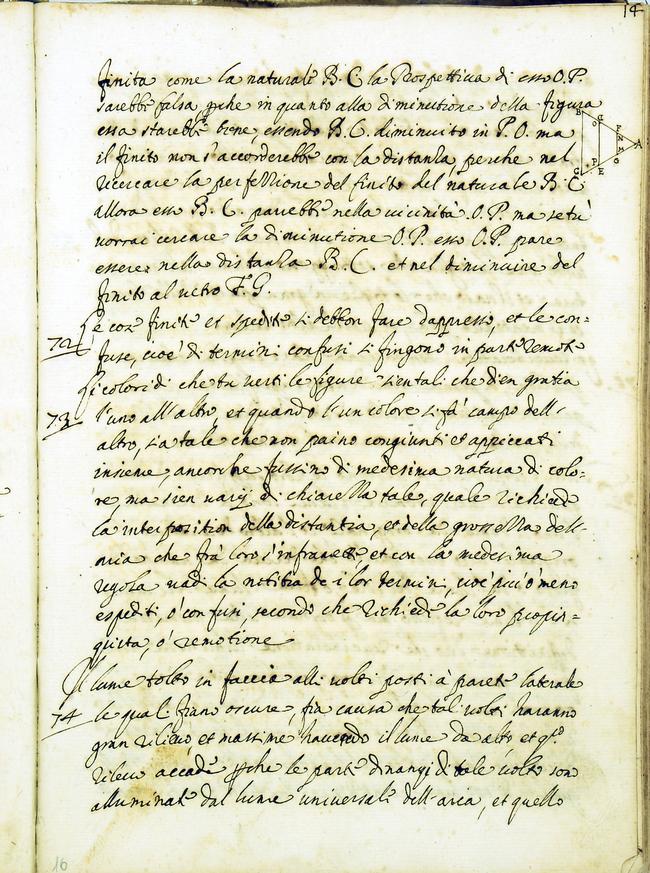 14
finita come la naturale B. C. la Prospettiva di esso O. P.
sarebbe falsa perche in quanto alla diminutione della figura
essa starebbe bene essendo B. C. diminuito in P. O. ma
il finito non s'accorderebbe con la distanza perche nel
ricercare la perfettione del finito del naturale B. C
allora esso B. C. parebbe nella vicinità O. P. ma se tu
vorrai cercare la diminutione O. P. esso O. P. pare
essere nella distanza B. C. et nel diminuire del
finito al vetro F. G.
72 Le cose finite et spedite si debbon fare d'appresso, et le con=
fuse, cioe' di termini confusi si fingono in parte remote
73 Li colori di che tu vesti le figure sien tali che dien gratia
l'uno all'altro, et quando l'un colore si fa' campo dell'
altro, sia tale che non paino congiunti et appiccati
insieme, ancorche fussino di medesima natura di colo=
re, ma sien varij di chiarezza tale, quale richiede
la interposition della distantia, et della grossezza dell'
aria che frà loro s'inframette, et con la medesima
regola vadi la notitia de i lor termini, cioe' più ò meno
espediti, ò confusi, secondo che richiede la loro propin=
quita, ò remotione
74 Il lume tolto in faccia alli volti posti à parete laterale
le quali siano oscure, fia causa che tali volti haranno
gran rilievo, et massime havendo il lume da alto, et q.to
rilievo accade perche le parte dinanzi di tale volto sono
alluminate dal lume universale dell'aria, et quello
16